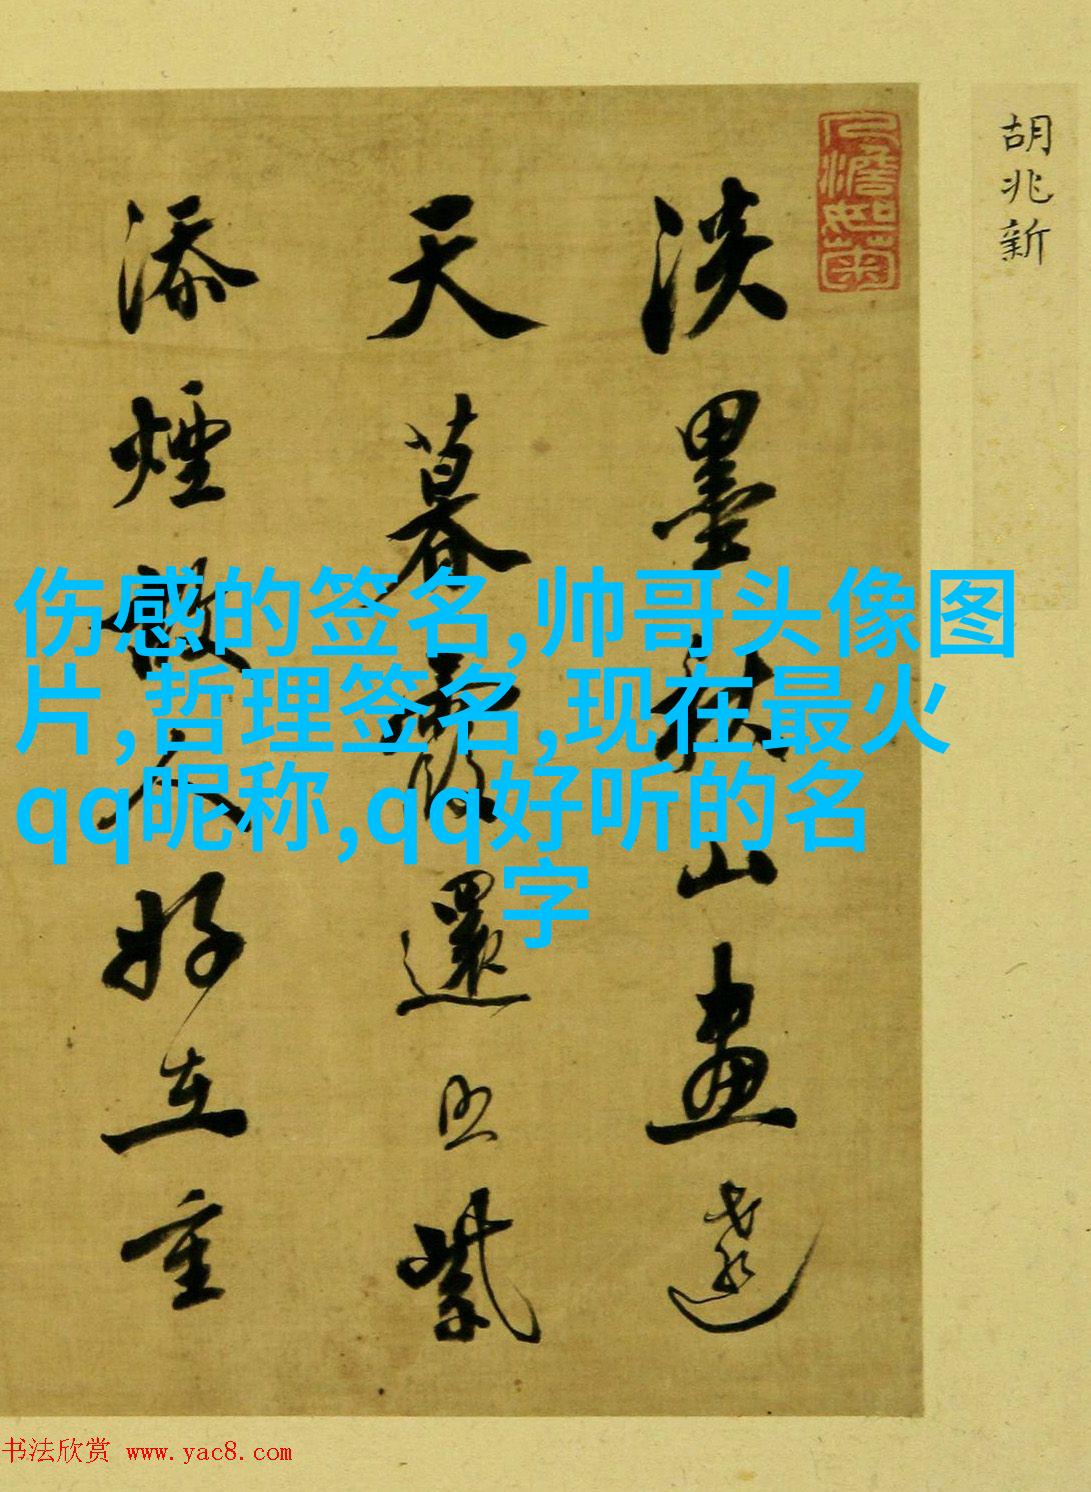 胡兆新
人澹如菊
淡墨秋山畫遠
天暮霞還照紫
添煙故人好在重
伤感的签名,帅哥头像图
片,哲理签名,现在最火
qq昵称,qq好听的名
字
书法欣赏 www.yac8.com